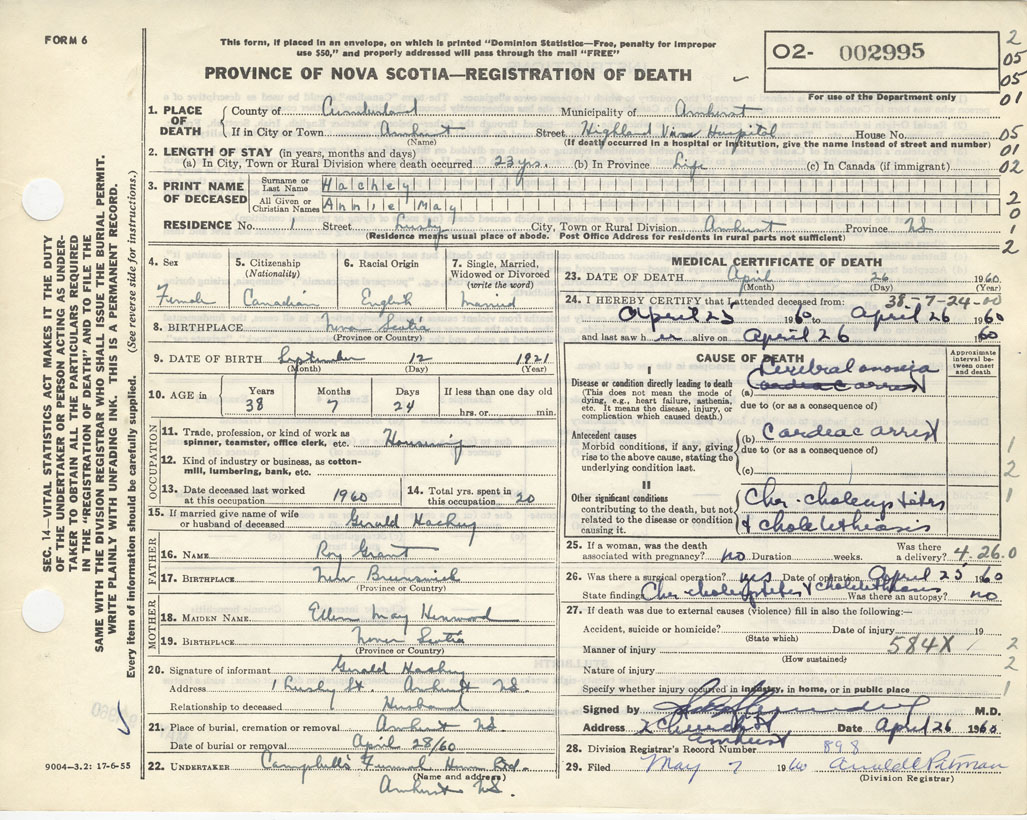 FORM 6
This form, if placed in an envelope, on which is printed "Dominion Statistics—Free, penalty for improper
use $50," and properly addressed will pass through the mail "FREE"
PROVINCE OF NOVA SCOTIA—REGISTRATION OF DEATH
O2- 002995
For use of the Department only
2
05
05
01
05
01
02
2
0
1
2
SEC. 14—VITAL STATISTICS ACT MAKES IT THE DUTY
OF THE UNDERTAKER OR PERSON ACTING AS UNDER-
TAKER TO OBTAIN ALL THE PARTICULARS REQUIRED
IN THE "REGISTRATION OF DEATH" AND TO FILE THE
SAME WITH THE DIVISION REGISTRAR WHO SHALL ISSUE THE BURIAL PERMIT.
WRITE PLAINLY WITH UNFADING INK. THIS IS A PERMANENT RECORD.
Every item of information should be carefully supplied. (See reverse side for instructions.)
1. PLACE OF DEATH
County of Cumberland Municipality of Amherst
If in City or Town Amherst Street Highland View Hospital House No.
(Name) (If death occurred in a hospital or institution, give the name instead of street and number)
2. LENGTH OF STAY (in years, months and days)
(a) In City, Town or Rural Division where death occurred 23 yrs. (b) In Province Life (c) In Canada (if immigrant)
3. PRINT NAME OF DECEASED
Surname or Last Name Hachey
All Given or Christian Names Annie May
RESIDENCE No. 1 Street Lusby City, Town or Rural Division Amherst Province NS
(Residence means usual place of abode. Post Office Address for residents in rural parts not sufficient)
4. Sex
Female
5. Citizenship
(Nationality)
Canadian
6. Racial Origin
English
7. Single, Married,
Widowed or Divorced
(write the word)
Married
8. BIRTHPLACE Nova Scotia
(Province or Country)
9. DATE OF BIRTH September 12 1921
(Month) (Day) (Year)
10. AGE in
Years 38
Months 7
Days 24
If less than one day old
hrs. or min.
OCCUPATION
11. Trade, profession, or kind of work as
spinner, teamster, office clerk, etc.
12. Kind of industry or business, as cotton-
mill, lumbering, bank, etc.
13. Date deceased last worked
at this occupation 1960
14. Total yrs. spent in
this occupation 20
15. If married give name of wife
or husband of deceased Gerald Hachey
FATHER
16. NAME Roy Grant
17. BIRTHPLACE New Brunswick
(Province or Country)
MOTHER
18. MAIDEN NAME Ellen May Henwood
19. BIRTHPLACE Nova Scotia
(Province or Country)
20. Signature of informant Gerald Hachey
Address 1 Lusby St. Amherst NS.
Relationship to deceased Husband
21. Place of burial, cremation or removal Amherst NS
Date of burial or removal April 28/60
22. UNDERTAKER Campbell's Funeral Home Ltd.
(Name and address)
Amherst NS.
9004—3.2: 17-6-55
MEDICAL CERTIFICATE OF DEATH
23. DATE OF DEATH April 26 1960
(Month) (Day) (Year)
38-7-24-00
24. I HEREBY CERTIFY that I attended deceased from:
April 25 1960 to April 26 1960
and last saw her alive on April 26 1960
CAUSE OF DEATH
Approximate
interval be-
tween onset
and death
I
Disease or condition directly leading to death
(This does not mean the mode of
dying, e.g., heart failure, asthenia,
etc. It means the disease, injury, or
complication which caused death.)
Cerebral anoxia
(a) cardiac arrest
due to (or as a consequence of)
Antecedent causes
Morbid conditions, if any, giving
rise to the above cause, stating the
underlying condition last.
(b) Cardiac arrest
due to (or as a consequence of)
(c)
II
Other significant conditions
contributing to the death, but not
related to the disease or condition
causing it.
Chr. cholecystitis
& cholelithiasis
1
2
1
25. If a woman, was the death
associated with pregnancy? no Duration weeks.
Was there
a delivery? 4.26.0
26. Was there a surgical operation? yes Date of operation April 25 1960
State findings Chr cholecystitis & cholelithiasis Was there an autopsy? no
27. If death was due to external causes (violence) fill in also the following:—
Accident, suicide or homicide? Date of injury 19
(State which)
Manner of injury 584X
(How sustained)
Nature of injury
Specify whether injury occurred in industry, in home, or in public place
2
2
1
Signed by M.D.
Address Church St Date April 26 1960
Amherst
28. Division Registrar's Record Number 898
29. Filed May 7 1960
(Division Registrar)